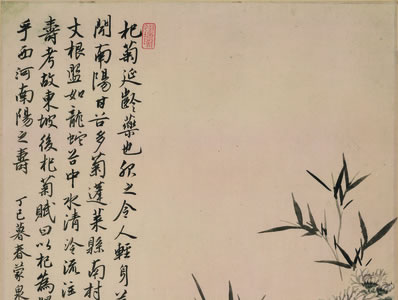 杞菊延齡藥也服之令人輕身
聞南陽甘谷多菊蓬萊縣南村
丈根盤如龍蛇谷中水清冷流注
壽考故東坡後杞菊賦曰以杞為
乎西河南陽之壽
丁巳暮春蒙泉